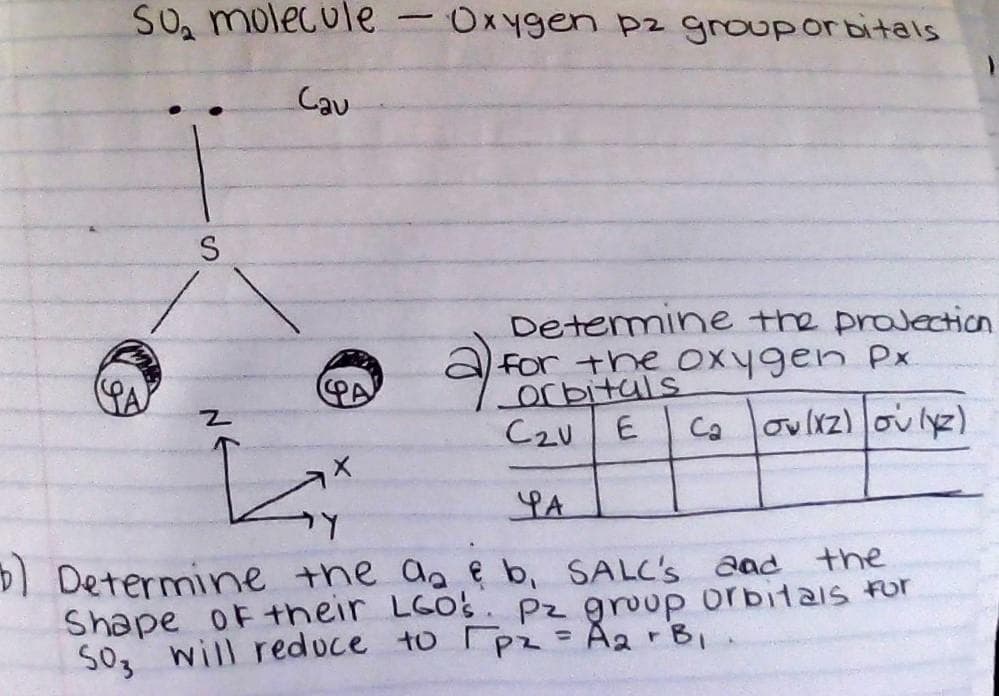 SO₂ molecule - Oxygen pz group orbitals
C₂ᵥ
S
φA φA
Z
X
Y
Determine the projection
a) for the oxygen Px
orbitals
C₂ᵥ E C₂ σᵥ(xz) σᵥ'(yz)
φA
b) Determine the a₂ & b₁ SALC's and the
Shape of their LGO's. pz group orbitals for
SO₃ will reduce to Γpz = A₂ + B₁.